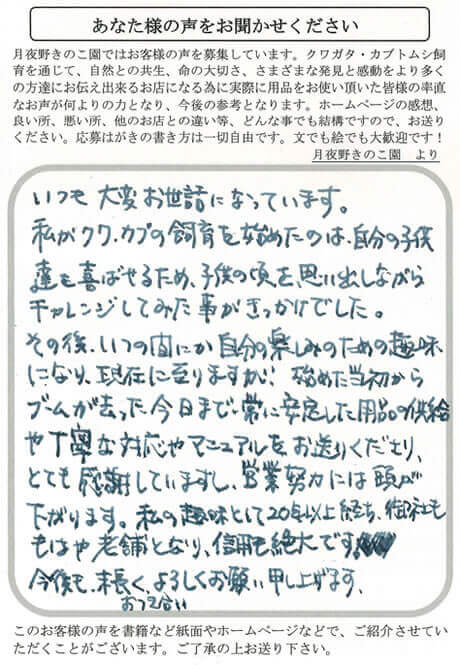 あなた様の声をお聞かせください
月夜野きのこ園ではお客様の声を募集しています。クワガタ・カブトムシ飼
育を通じて、自然との共生、命の大切さ、さまざまな発見と感動をより多く
の方達にお伝え出来るお店になる為に実際に用品をお使い頂いた皆様の率直
なお声が何よりの力となり、今後の参考となります。ホームページの感想、
良い所、悪い所、他のお店との違い等、どんな事でも結構ですので、お送り
ください。応募はがきの書き方は一切自由です。文でも絵でも大歓迎です！
月夜野きのこ園　より
いつも 大変お世話になっています。
私がクワ.カブの飼育を始めたのは、自分の子供
達を喜ばせるため、子供の頃を思い出しながら
チャレンジしてみた事がきっかけでした。
その後、いつの間にか自分の楽しみのための趣味
になり、現在に至りますが、始めた当初から
ブームが去った今日まで常に安定した用品の供給
や丁寧な対応やマニュアルをお送りくださり、
とても感謝していますし、営業努力には頭が
下がります。私の趣味として20年以上経ち、御社も
もはや老舗となり、信用も絶大です
今後も、末長く、よろしくお願い申し上げます、
おつき合い
このお客様の声を書籍など紙面やホームページなどで、ご紹介させてい
ただくことがございます。ご了承の上お送り下さい。